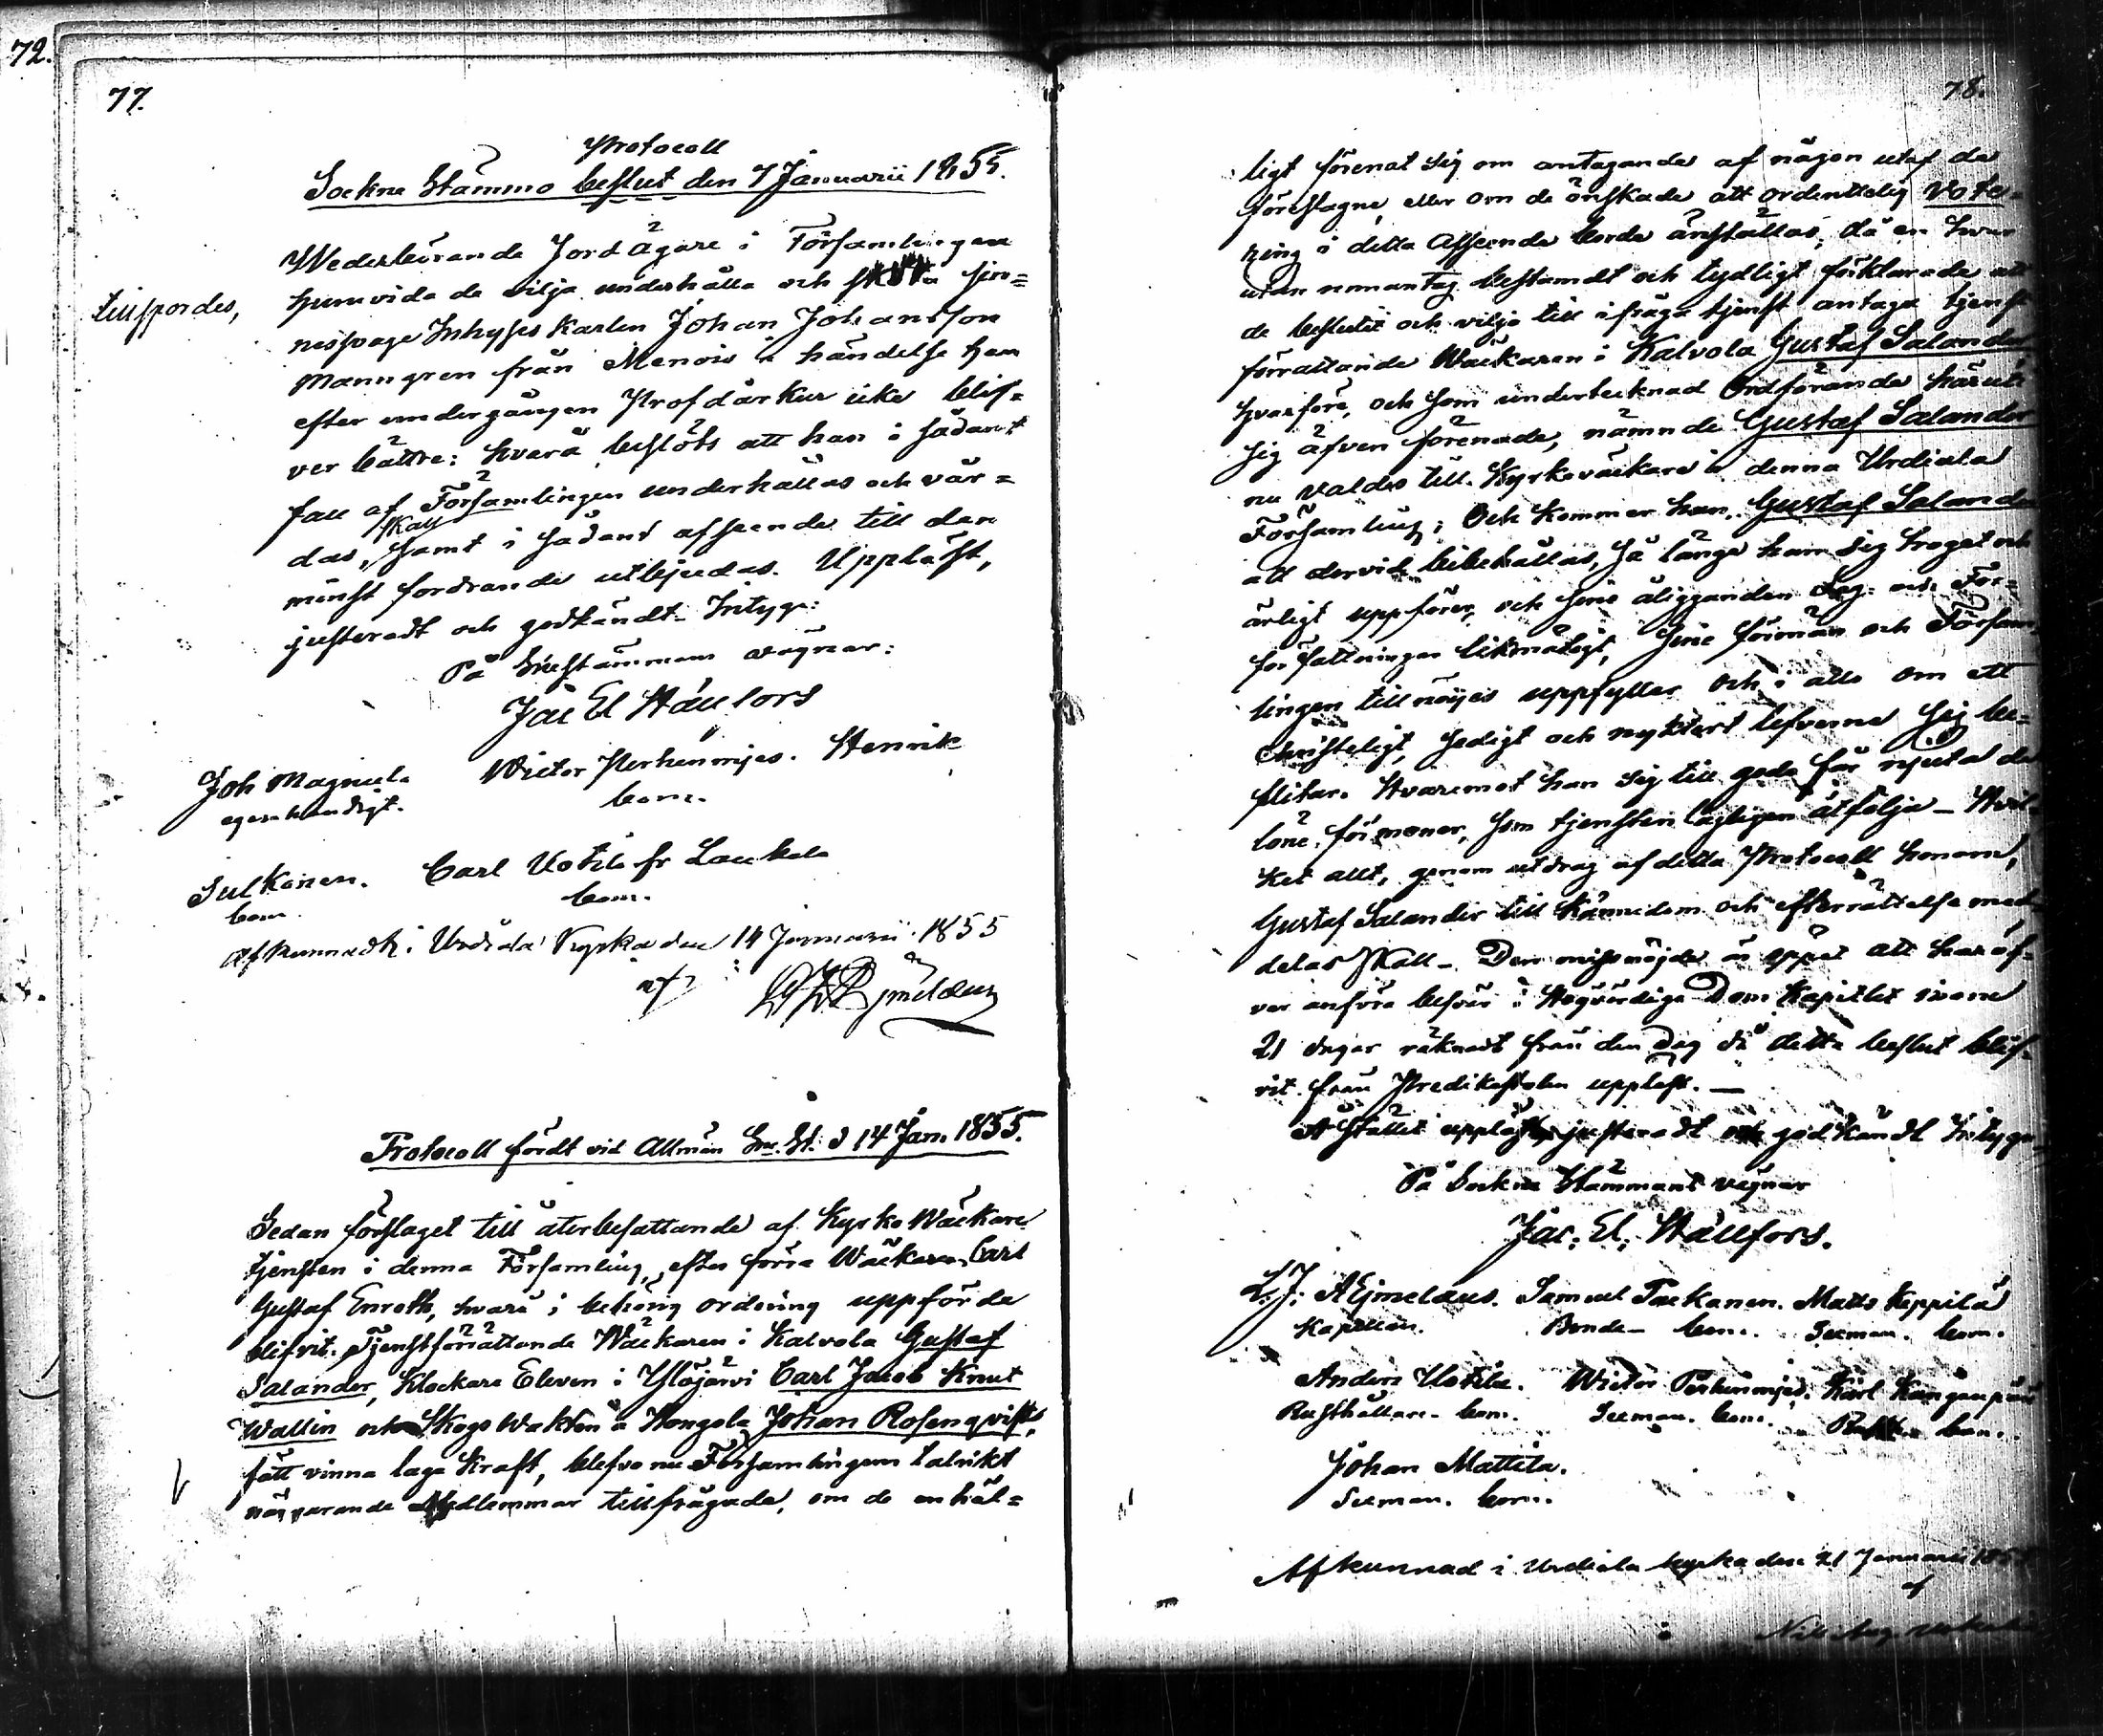 72.
77.
Protocoll
Sockne Stämmo beslut den 7 Januarii 1855.
Wederbörande Jord ägare i Församlingen
tillspordes,
huruvida de vilja underhålla och sköta sin=
nessvage Inhyses karlen Johan Johansson
Manngren från Menois i händelse han
efter undergången Prof dårkur icke blif=
ver bättre: hvarå beslöts att han i sådant
fall af Församlingen underhållas och vår=
das, skall samt i sådant afseende till den
minst fordrande utbjudas. Uppläst,
justeradt och godkändt. Intyga:
På Snestämmans vägnar:
Jac El Hällfors
Joh Magnula Wictor Perhenmijes. Henrik
egenhändigt. bom.
Sulkonen. Carl Uotila fr Laukela
bom. bom.
Afkunnadt i Urdiala Kyrka den 14 Januarii 1855
af
Protocoll fördt vid Allmän Sne. St. d 14 Jan. 1855.
Sedan förslaget till återbesättande af Kyrko Wäckare
tjensten i denna Församling, efter förra Wäckaren Carl
Gustaf Enroth, hvarå i behörig ordning uppförde
blifvit. Tjenstförrättande Wäckaren i Kalvola Gustaf
Salander, Klockare Eleven i Ylöjärvi Carl Jacob Knut
Wallin och Skogs Wakten å Hongola Johan Rosenqvist,
fått vinna laga Kraft, blefvo nu Församlingens talrikt
närvarande Medlemmar tillfrågade, om de enhäl=
78.
ligt förenat sig om antagande af någon utaf de
föreslagne, eller om de önskade att ordenttelig Vote=
ring i detta Afseende borde anställas; då en hvar
utan undantag bestämdt och tydligt förklarade att
de beslutit och vilja till ifråga tjenst antaga tjenst
förrättande Wäckaren i Kalvola Gustaf Salander
hvarföre, och som undertecknad Ordförande häruti
sig äfven förenade, nämnde Gustaf Salander
nu valdes till Kyrkoväckare i denna Urdiala
Församling; Och kommer han, Gustaf Salander
att dervid bibehållas, så länge han sig troget och
ärligt uppförer, och sine åligganden Lag och För=
fattningar likmätigt, sine förmän och Försam
lingen till nöijes uppfyller och i allo om ett
christeligt, sedigt och nyktert lefverne sig be=
flitar. Hvaremot han sig till godo får njuta de
löne förmoner, som tjensten lagligen åtfölja – Hvil=
ket allt, genom utdrag af detta Protocoll honom,
Gustaf Salander till kännedom och efterrättelse med=
delas skall – Den missnöjde är öppet att häröf=
ver anföra besvär i Högvördiga Dom Kapitlet inom
21 dagar räknadt från den Dag då detta beslut blif=
vit från Predikstolen uppläst. –
A Stället uppläst, justeradt och godkändt Intyga,
På Sockne Stämmans vägnar
Jac. El. Hällfors.
L. J. AEjmelæus. Samuel Tackanen. Matts Keppilä
Kapellan. Bonde – bom. Seeman. bom.
Anders Uotila. Wictor Perhenmijes. Karl Kangenpää
Rusthållare. bom. Seeman. bom. bom.
Johan Mattila.
Seeman. bom.
Afkunnad i Urdiala kyrka den 21 Januarii 1855
af